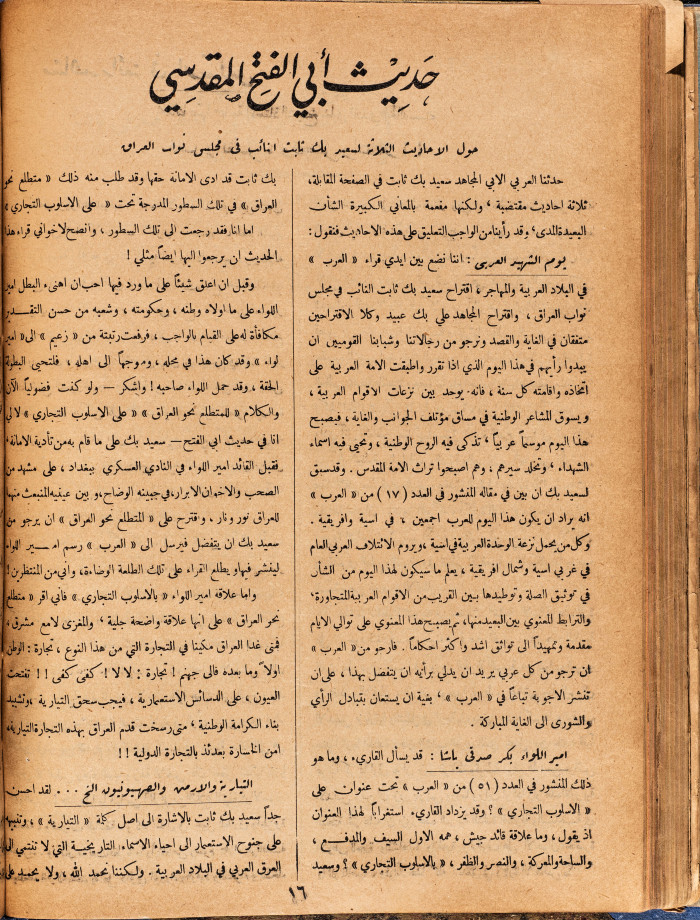 حَدِيْث أبي الفتح المقدسي
حول الاحاديث الثلاثة لسعيد بك ثابت النائب فى مجلس نواب العراق
حدثنا العربي الابي المجاهد سعيد بك ثابت في الصفحة المقابلة،
ثلاثة احاديث مقتضبة ، ولكنها مفعمة بالمعاني الكبيرة الشأن
البعيدة المدى، وقد رأينا من الواجب التعليق على هذه الاحاديث فنقول :
يوم الشهيد العربى : اننا نضع بين ايدي قراء « العرب »
في البلاد العربية والمهاجر ، اقتراح سعيد بك ثابت النائب في مجلس
نواب العراق ، واقتراح المجاهد علي بك عبيد وكلا الاقتراحين
متفقان في الغاية والقصد ونرجو من رجالاتنا وشبابنا القوميين ان
يبدوا رأيهم في هذا اليوم الذي اذا تقرر واطبقت الامة العربية على
اتخاذه واقامته كل سنة ، فانه يوحد بين نزعات الاقوام العربية ،
ويسوق المشاعر الوطنية في مساق مؤتلف الجوانب والغاية ، فيصبح
هذا اليوم موسماً عربياً ، تذكى فيه الروح الوطنية ، وتحيى فيه اسماء
الشهداء ، وتخلد سيرهم ، وهم اصبحوا تراث الامة المقدس . وقد سبق
لسعيد بك ان بين في مقاله المنشور في العدد (١٧) من « العرب »
انه يراد ان يكون هذا اليوم للعرب اجمعين ، في اسية وافريقية .
وكل من يحمل نزعة الوحدة العربية في اسية ، ويروم الائتلاف العربي العام
في غربي اسية وشمال افريقية ، يعلم ما سيكون لهذا اليوم من الشأن
في توثيق الصلة وتوطيدها بين القريب من الاقوام العربية المتجاورة،
والترابط المعنوي بين البعيد منها، ثم يصبح هذا المعنوي على توالي الايام
مقدمة وتمهيداً الى تواثق اشد واكثر احكاماً . فارجو من « العرب »
ان ترجو من كل عربي يريد ان يدلي برأيه ان يتفضل بهذا ، على ان
تنشر الاجوبة تباعاً في « العرب » ، بغية ان يستعان بتبادل الرأي
والشورى الى الغاية المباركة .
امير اللواء بكر صدقى باشا : قد يسأل القاريء ، وما هو
ذلك المنشور في العدد (٥١) من « العرب » تحت عنوان على
« الاسلوب التجاري » ؟ وقد يزداد القاريء استغراباً لهذا العنوان
اذ يقول ، وما علاقة قائد جيش ، همه الاول السيف والمدفع ،
والساحة والمعركة ، والنصر والظفر ، « بالاسلوب التجاري » ؟ وسعيد
بك ثابت قد ادى الامانة حقها وقد طلب منه ذلك « متطلع نحو
العراق » في تلك السطور المدرجة تحت « على الاسلوب التجاري »
اما انا فقد رجعت الى تلك السطور ، وانصح لاخواني قراء هذا
الحديث ان يرجعوا اليها ايضاً مثلي !
وقبل ان اعلق شيئاً على ما ورد فيها احب ان اهنىء البطل امير
اللواء على ما اولاه وطنه ، وحكومته ، وشعبه من حسن التقدير
مكافأة له على القيام بالواجب ، فرفعت رتبته من « زعيم » الى « امير
لواء » وقد كان هذا في محله ، وموجهاً الى اهله ، فلتحيى البطولة
الحقة ، وقد حمل اللواء صاحبه ! واشكر — ولو كنت فضولياً الآن
والكلام « للمتطلع نحو العراق » « على الاسلوب التجاري » لا لي
انا في حديث ابي الفتح — سعيد بك على ما قام به من تأدية الامانة،
فقبل القائد امير اللواء في النادي العسكري ببغداد ، على مشهد من
الصحب والاخوان الابرار، في جبينه الوضاح، و بين عينيه المنبعث منهما
للعراق نور ونار ، واقترح على « المتطلع نحو العراق » ان يرجو من
سعيد بك ان يتفضل فيرسل الى « العرب » رسم امير اللواء
لينشر فيها ويطلع القراء على تلك الطلعة الوضاءة، واني من المنتظرين !
واما علاقة امير اللواء « بالاسلوب التجاري » فاني اقر « متطلع
نحو العراق » على انها علاقة واضحة جلية ، والمغزى لامع مشرق ،
فمتى غدا العراق مكيناً في التجارة التي من هذا النوع ، تجارة : الوطن
اولاً وما بعده فالى جهنم ! تجارة : لا لا ! كفى كفى ! ! تفتحت
العيون ، على الدسائس الاستعمارية ، فيجب سحق التيارية ، وتشييد
بناء الكرامة الوطنية ، متى رسخت قدم العراق بهذه التجارة التيارية،
امن الخسارة بعدئذ بالتجارة الدولية ! !
التيارية والارمن والصهيونيون الخ . . . لقد احسن
جداً سعيد بك ثابت بالاشارة الى اصل كلمة « التيارية » ، وتنبيهه
على جنوح الاستعمار الى احياء الاسماء التاريخية التي لا تنتمي الى
العرق العربي في البلاد العربية . ولكننا نحمد الله ، ولا يحمد على
١٦